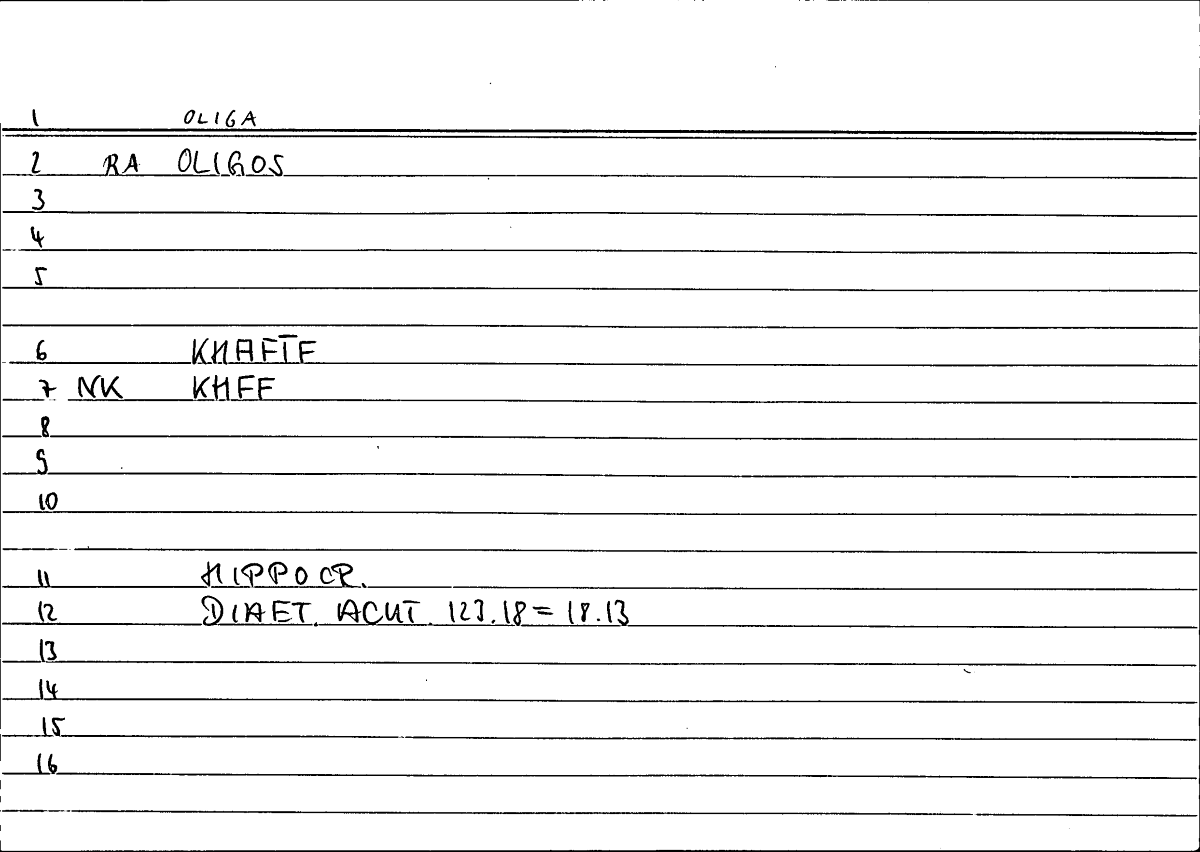 1 OLIGA
2 RA OLIGOS
3
4
5
6 KHAFĪF
7 NK KHFF
8
9
10
11 HIPPOCR.
12 DIAET. ACUT. 123.18 = 18.13
13
14
15
16